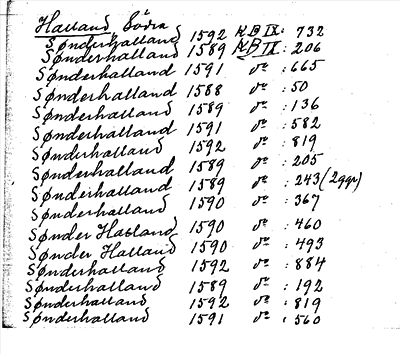 Halland, Södra
Sønderhalland 1592 KB IX: 732
Sønderhalland 1589 KB IX: 206
Sønderhalland 1591 do : 665
Sønderhalland 1588 do : 50
Sønderhalland 1589 do : 136
Sønderhalland 1591 do : 582
Sønderhalland 1592 do : 819
Sønderhalland 1589 do : 205
Sønderhalland 1589 do : 243 (2ggr)
Sønderhalland 1590 do : 367
Sønder Halland 1590 do : 460
Sønder Halland 1590 do : 493
Sønderhalland 1592 do : 884
Sønderhalland 1589 do : 192
Sønderhalland 1592 do : 819
Sønderhalland 1591 do : 560